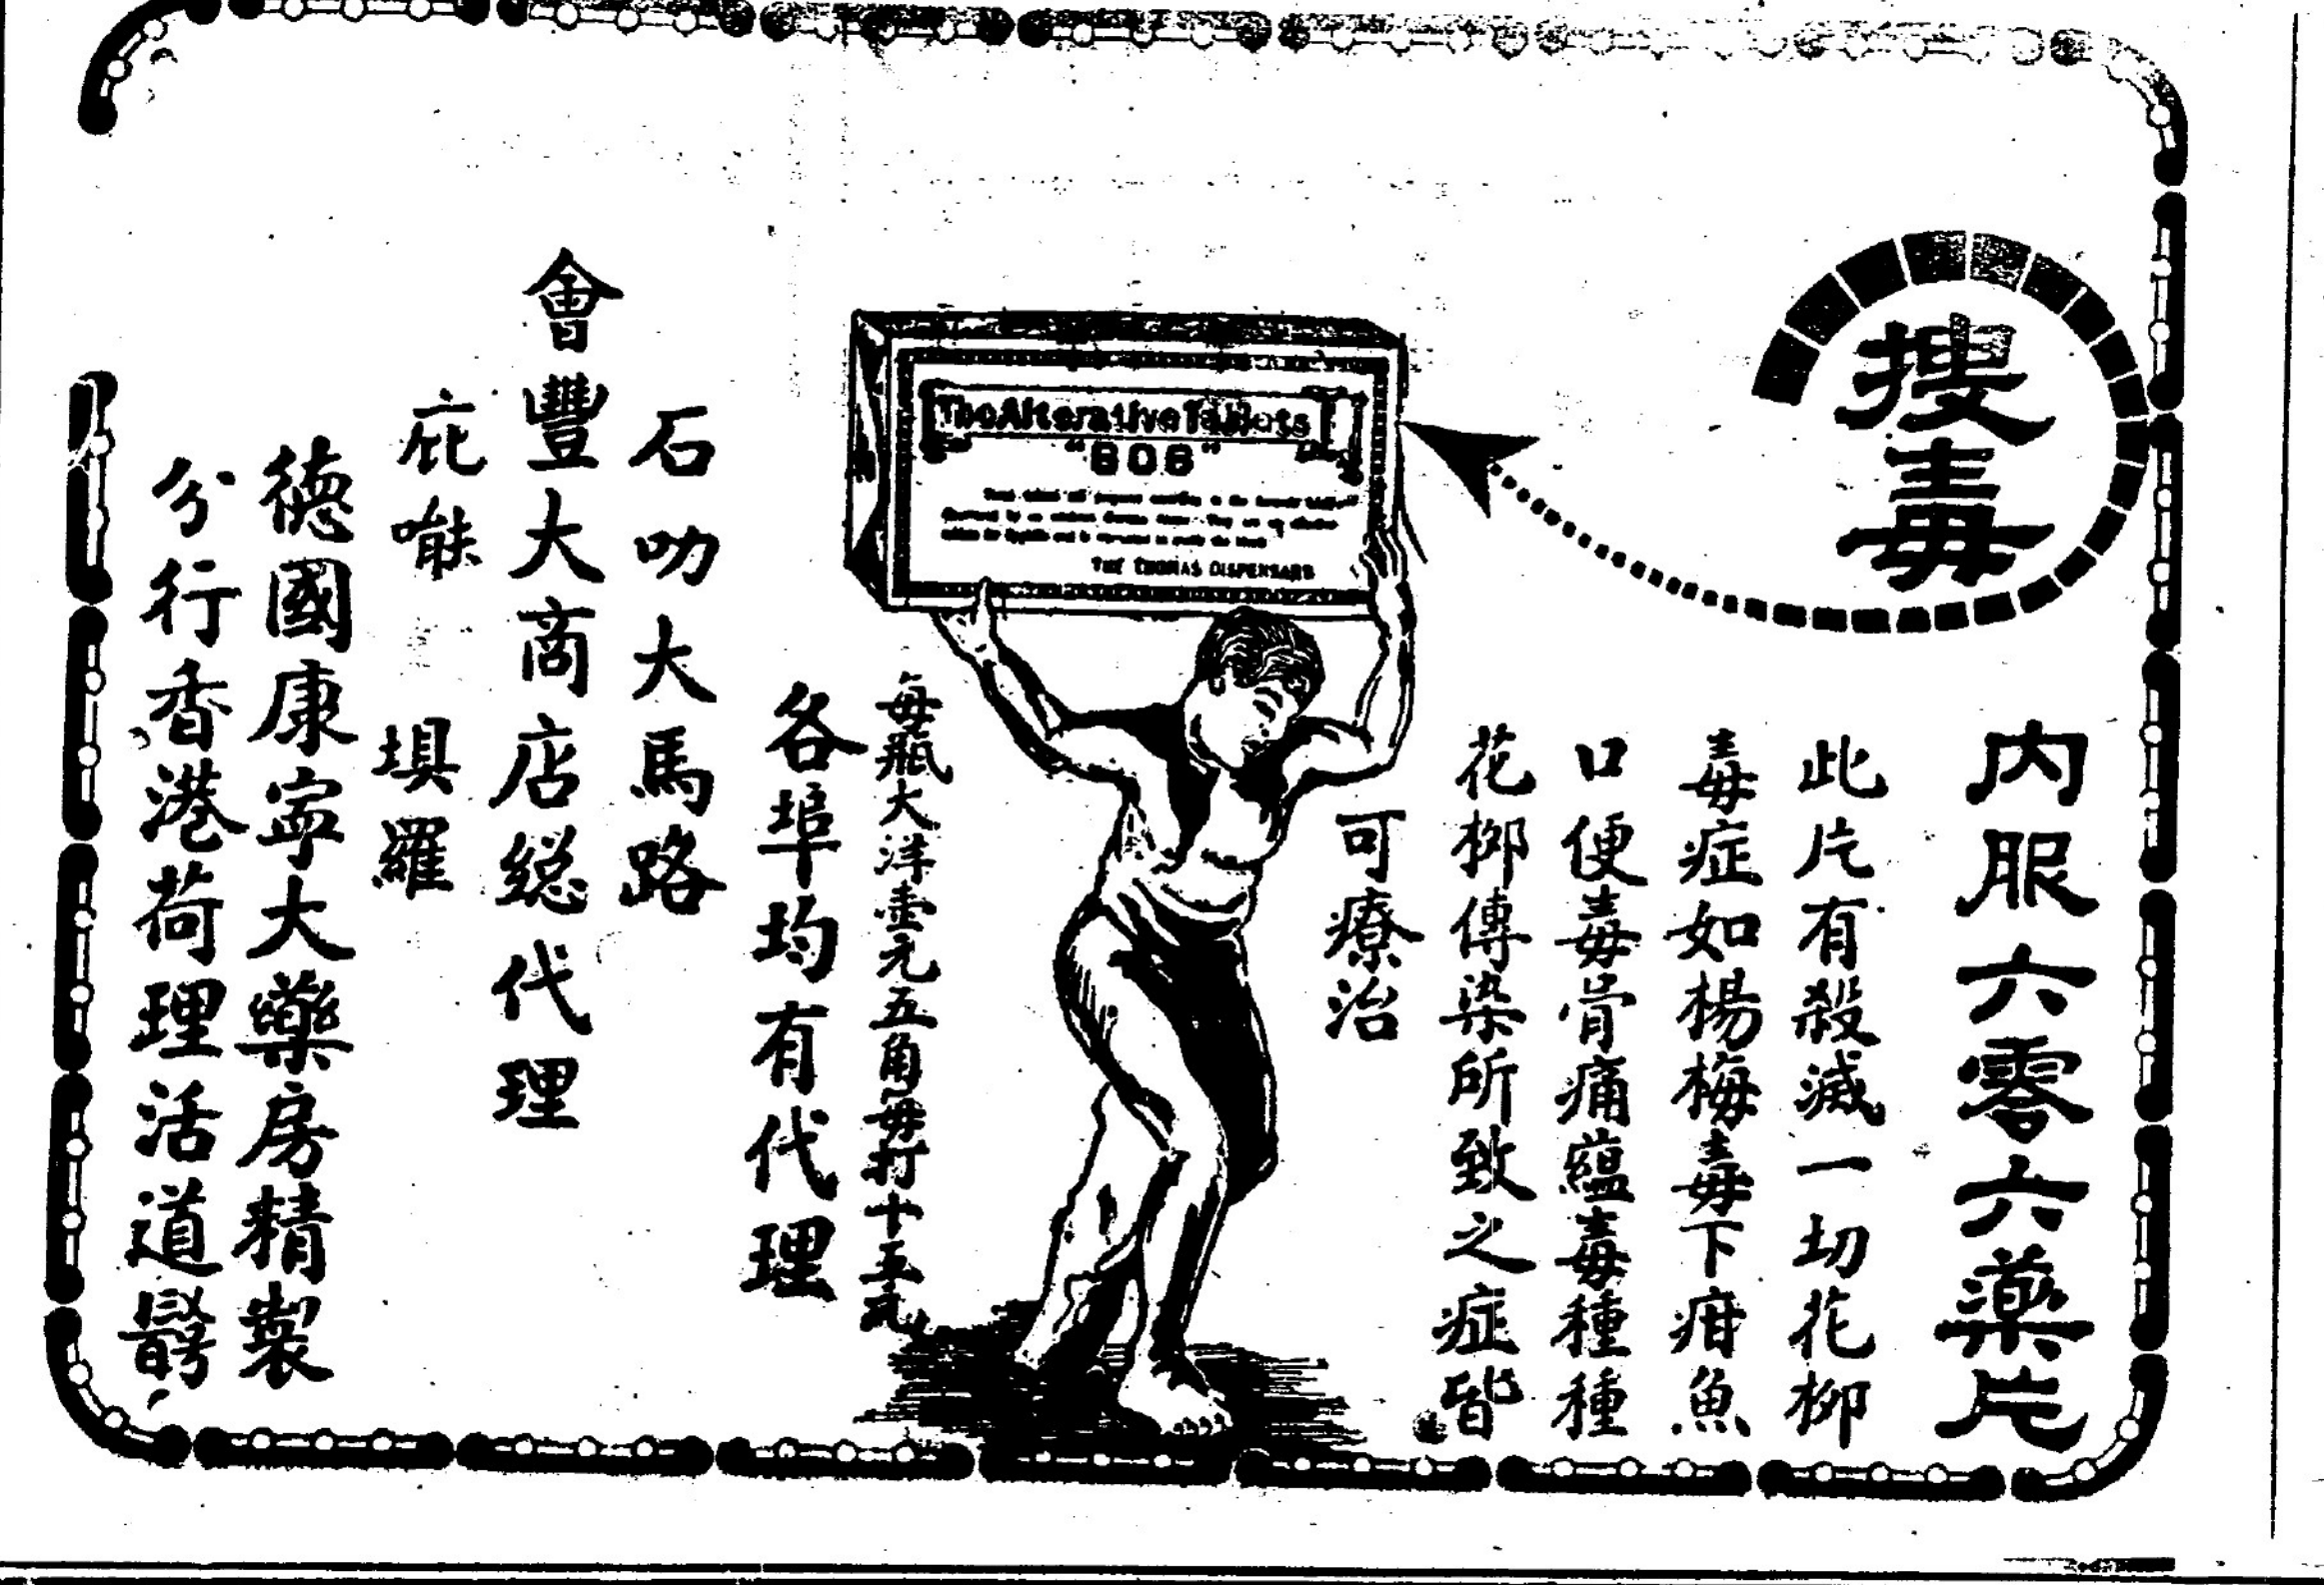 搜毒
内服六零六藥片
此片有殺滅一切花柳
毒症如楊梅毒下疳魚
口便毒骨痛蘊毒種種
花柳傳染所致之症皆
可療治
The Alterative Tablets
"606"
THE THOMAS DISPENSARY
每瓶大洋壹元五角每打十五元
各埠均有代理
石叻大馬路
會豐大商店總代理
庇能 埧羅
德國康寧大藥房精製
分行香港荷理活道